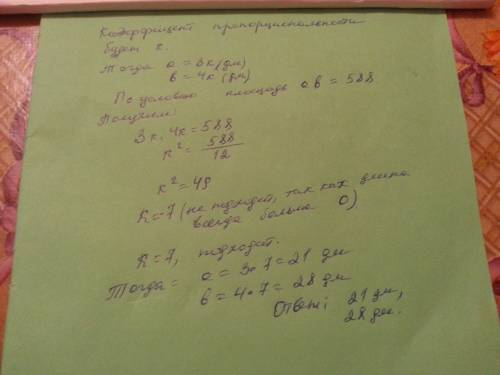 Коэффициент пропорциональности
будет к.
Тогда a = 3к (дм)
в = 4к (дм)
По условию площадь a в = 588
Получим:
3к · 4к = 588
к² = 588/12
к² = 49
К=-7 (не подходит, так как длина
всегда больше 0)
К=7, подходит.
Тогда = a = 3•7 = 21 дм
в = 4•7 = 28 дм
Ответ: 21 дм,
28 дм.